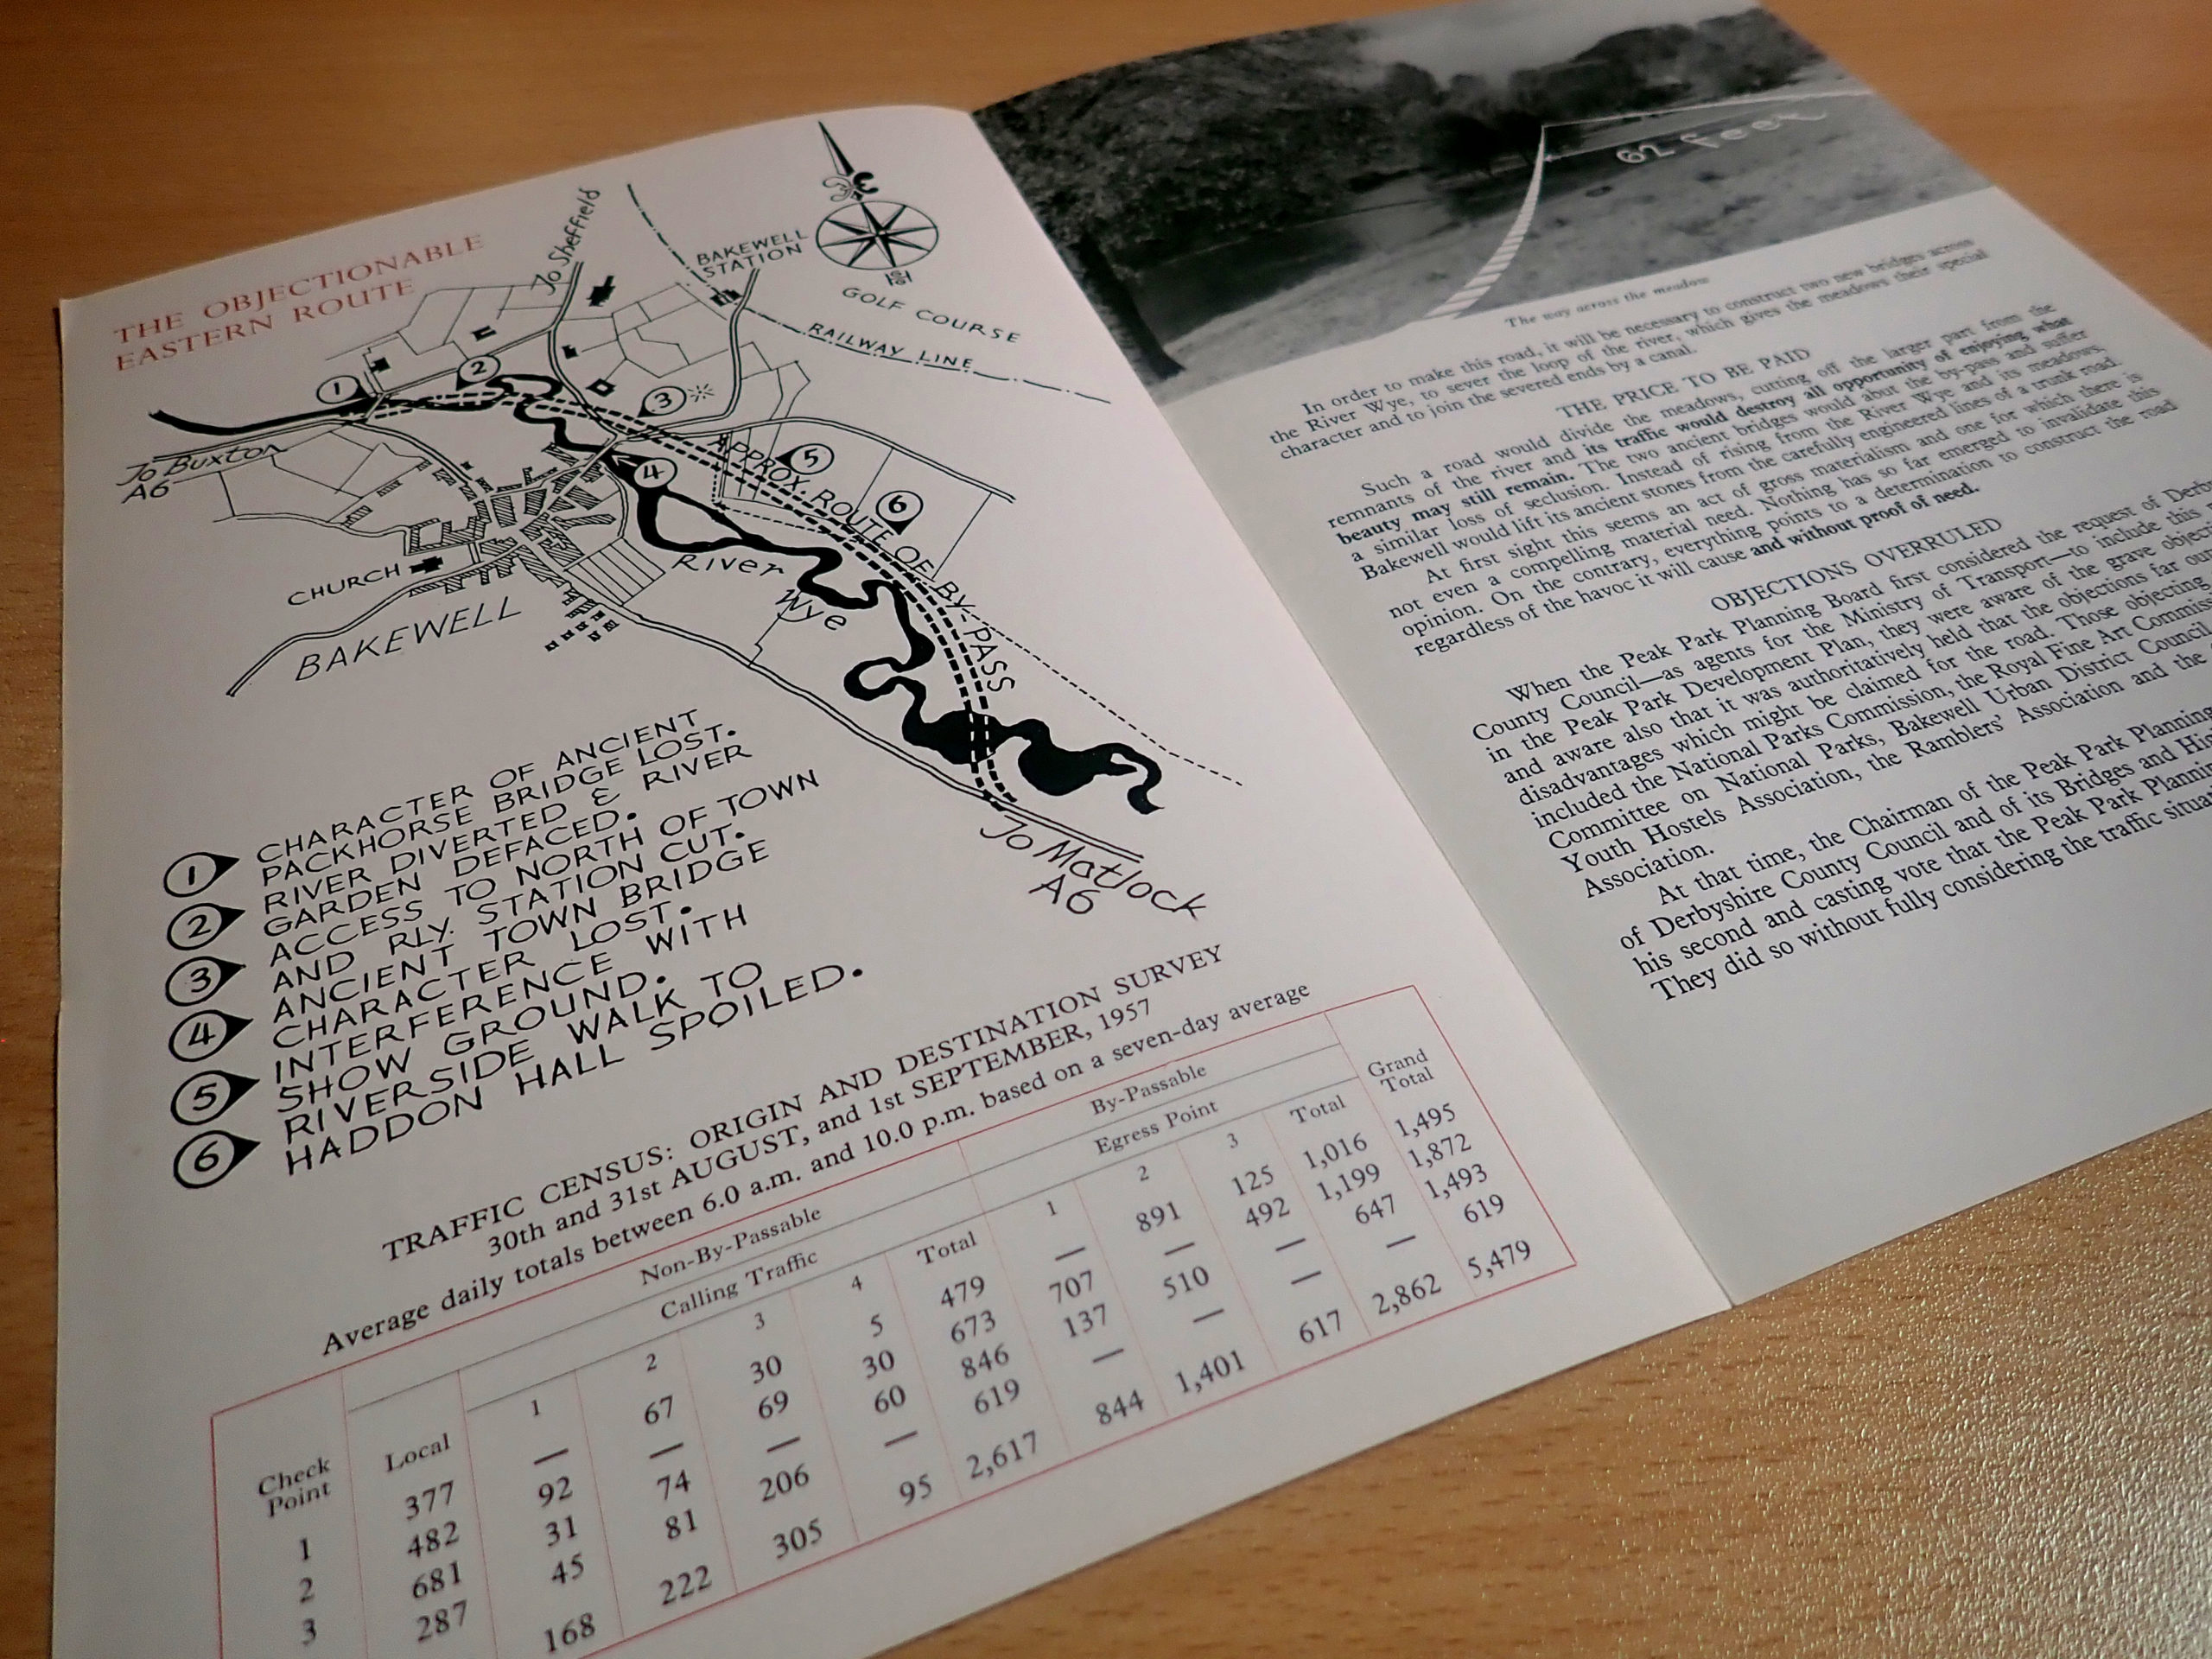 THE OBJECTIONABLE
EASTERN ROUTE
To Sheffield
BAKEWELL
STATION
GOLF COURSE
RAILWAY LINE
1
2
3
4
5
6
To Buxton
A6
APPROX. ROUTE OF BY-PASS
CHURCH
BAKEWELL
River
Wye
To Matlock
A6
1 CHARACTER OF ANCIENT
PACKHORSE BRIDGE LOST.
2 RIVER DIVERTED & RIVER
GARDEN DEFACED.
3 ACCESS TO NORTH OF TOWN
AND RLY. STATION CUT.
4 ANCIENT TOWN BRIDGE
CHARACTER LOST.
5 INTERFERENCE WITH
SHOW GROUND.
6 RIVERSIDE WALK TO
HADDON HALL SPOILED.
TRAFFIC CENSUS: ORIGIN AND DESTINATION SURVEY
30th and 31st AUGUST, and 1st SEPTEMBER, 1957
Average daily totals between 6.0 a.m. and 10.0 p.m. based on a seven-day average
Non-By-Passable By-Passable Grand
Total
Calling Traffic Egress Point
Check
Point Local 1 2 3 4 Total 1 2 3 Total
1 377 — 67 30 5 479 — 891 125 1,016 1,495
2 482 92 — 69 30 673 707 — 492 1,199 1,872
3 681 31 74 — 60 846 137 510 — 647 1,493
287 45 81 206 — 619 — — — — 619
168 222 305 95 2,617 844 1,401 617 2,862 5,479
62 feet
The way across the meadow
In order to make this road, it will be necessary to construct two new bridges across
the River Wye, to sever the loop of the river, which gives the meadows their special
character and to join the severed ends by a canal.
THE PRICE TO BE PAID
Such a road would divide the meadows, cutting off the larger part from the
remnants of the river and its traffic would destroy all opportunity of enjoying what
beauty may still remain. The two ancient bridges would abut the by-pass and suffer
a similar loss of seclusion. Instead of rising from the River Wye and its meadows,
Bakewell would lift its ancient stones from the carefully engineered lines of a trunk road.
At first sight this seems an act of gross materialism and one for which there is
not even a compelling material need. Nothing has so far emerged to invalidate this
opinion. On the contrary, everything points to a determination to construct the road
regardless of the havoc it will cause and without proof of need.
OBJECTIONS OVERRULED
When the Peak Park Planning Board first considered the request of Derby
County Council—as agents for the Ministry of Transport—to include this
in the Peak Park Development Plan, they were aware of the grave object
and aware also that it was authoritatively held that the objections far ou
disadvantages which might be claimed for the road. Those objecting
included the National Parks Commission, the Royal Fine Art Commis
Committee on National Parks, Bakewell Urban District Council
Youth Hostels Association, the Ramblers' Association and the
Association.
At that time, the Chairman of the Peak Park Planning
of Derbyshire County Council and of its Bridges and Hig
his second and casting vote that the Peak Park Planning
They did so without fully considering the traffic situati